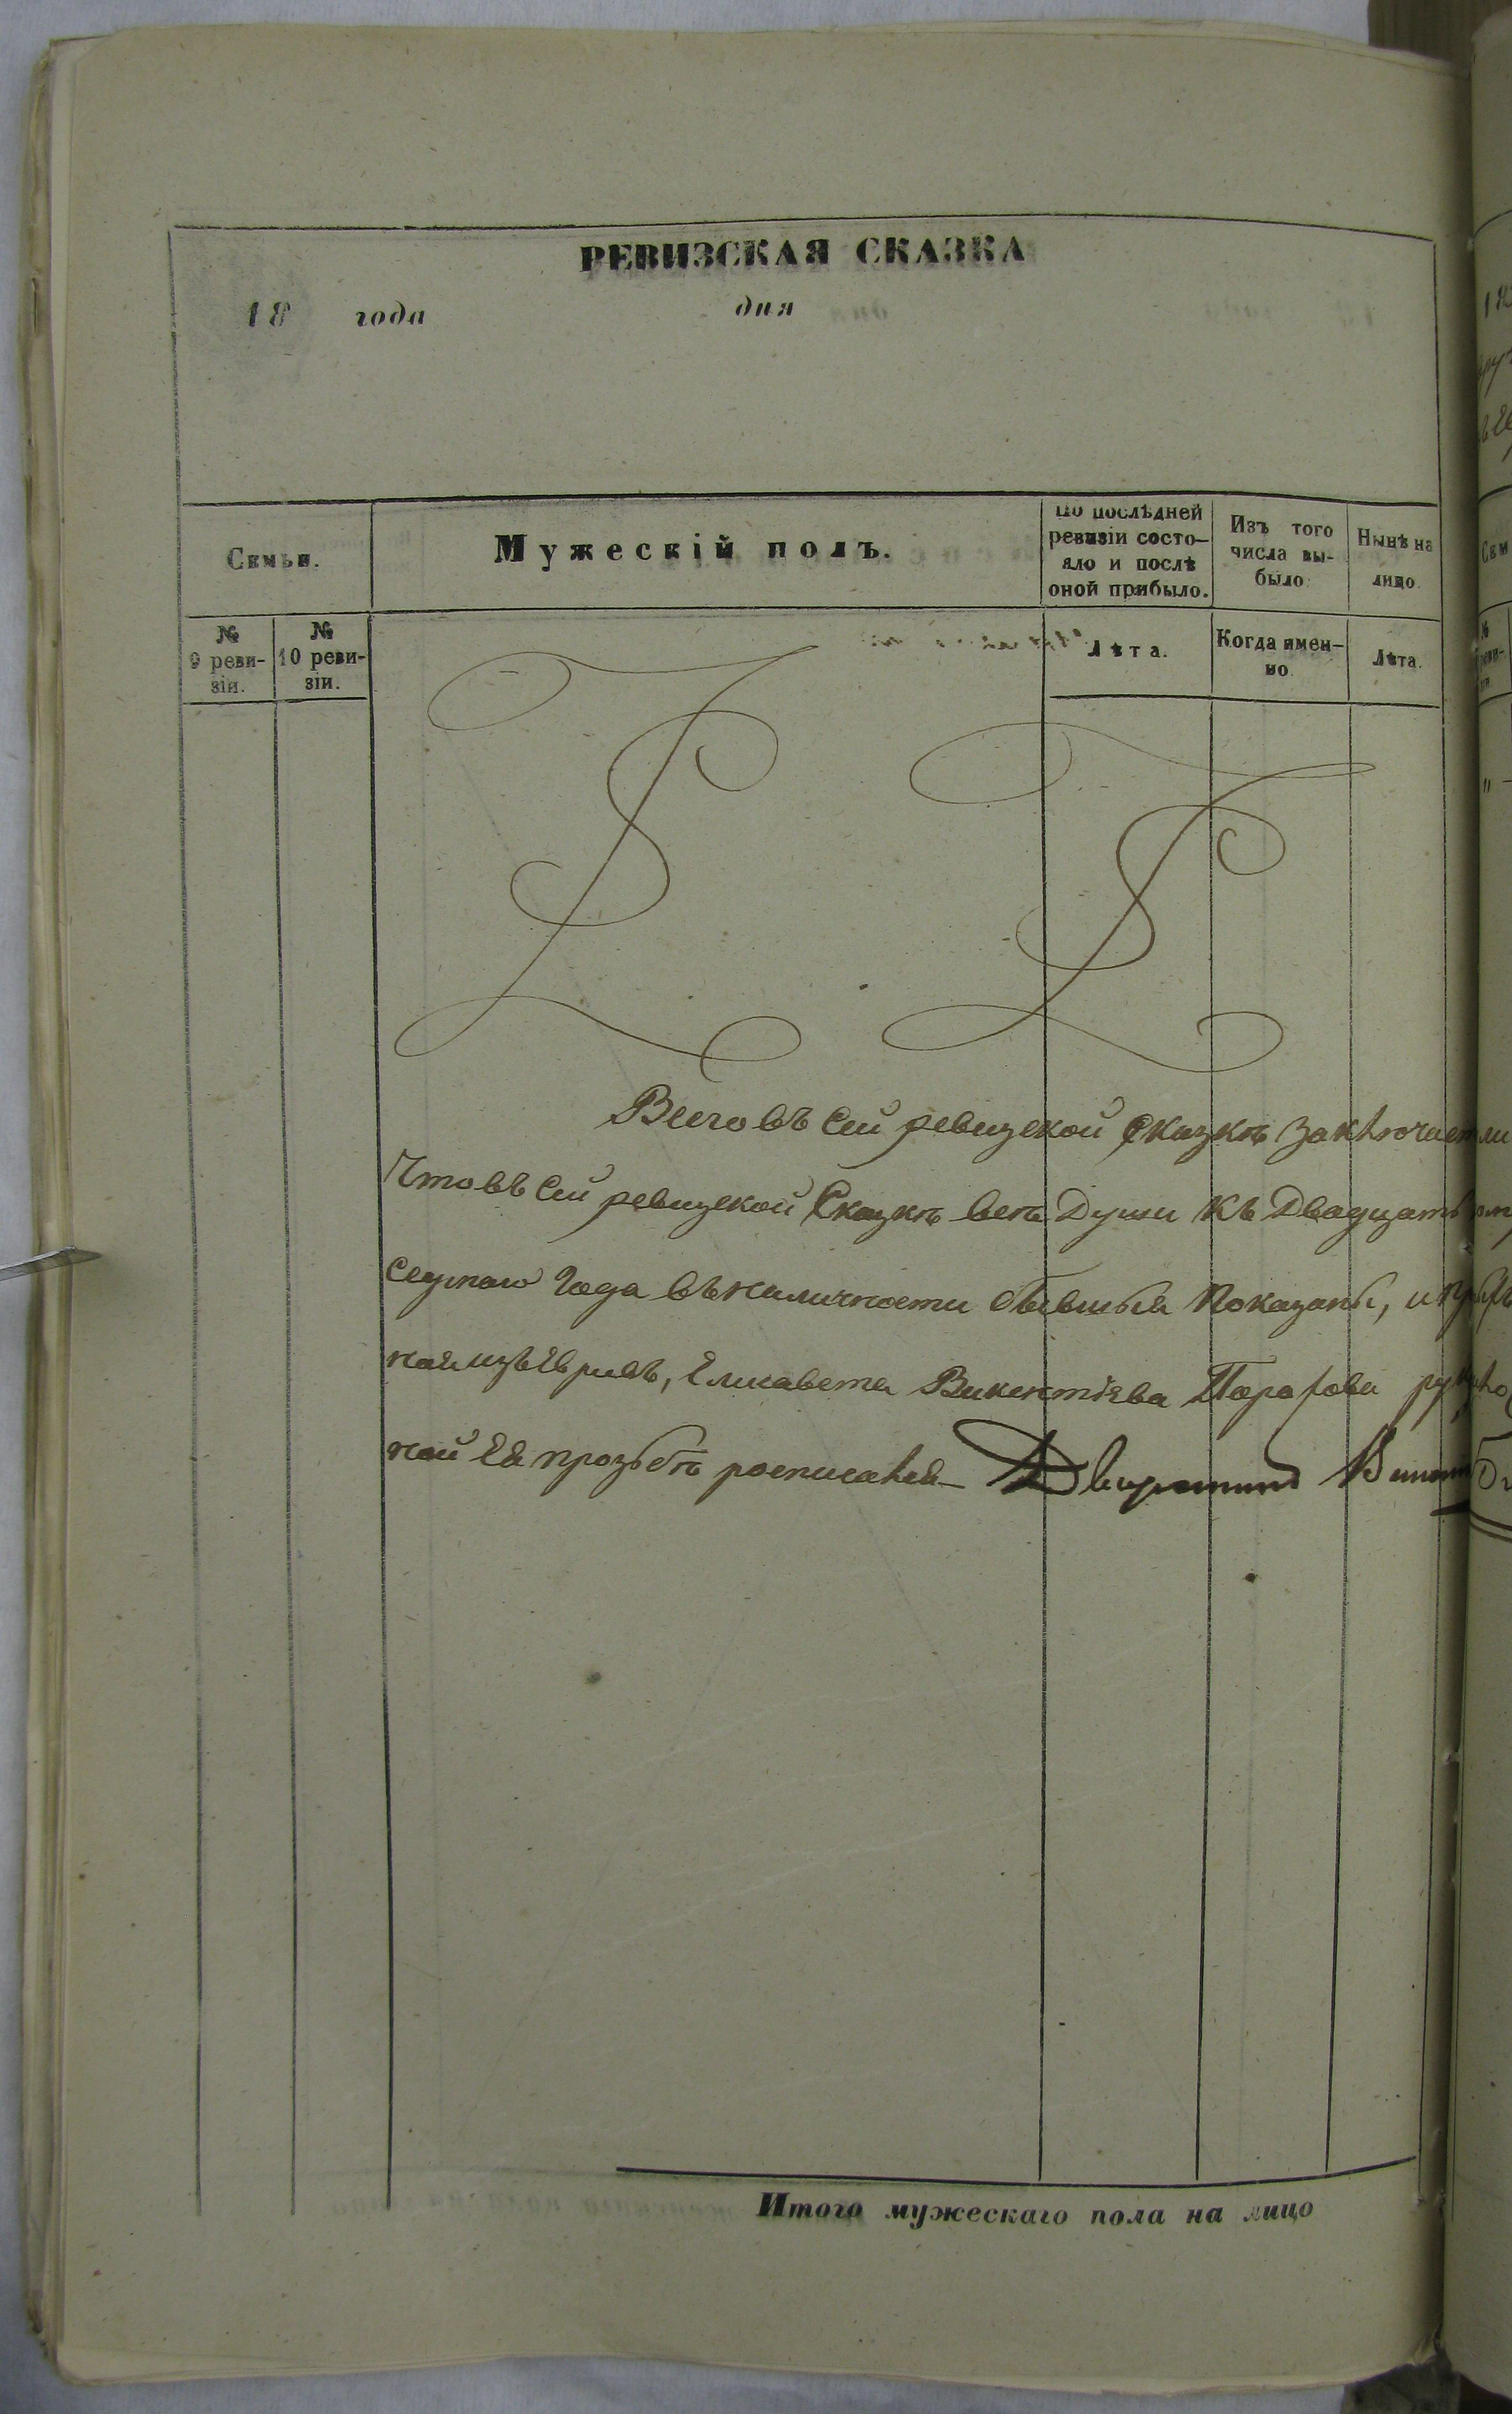 РЕВИЗСКАЯ СКАЗКА
18 года дня
Семьи.
Мужескій полъ.
По послѣдней
ревизіи состо-
яло и послѣ
оной прибыло.
Изъ того
числа вы-
было
Нынѣ на
лицо
№
9 реви-
зіи.
№
10 реви-
зіи.
Лѣта.
Когда имен-
но.
Лѣта.
Всего въ сей ревизской сказкѣ
Что въ сей ревизской Сказкѣ всѣ Души къ Двадцать
года въ наличности бывшыя показаны,
Елисавета Викентіева
ной Ея прозьбѣ росписался
Итого мужескаго пола на лицо